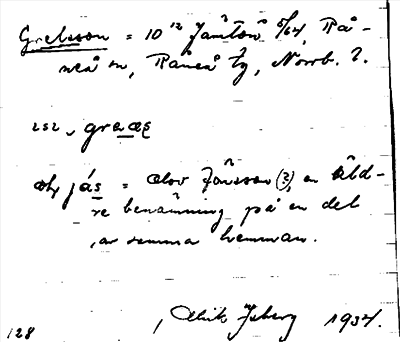 Grelsson = 10¹² Jämtön 5/64, Rå-
neå sn, Råneå tg, Norrb. l.
252, greas
jås = Olov Jönsson (?), en äld-
re benämning på en del
av samma hemman.
Isberg 1934.
128